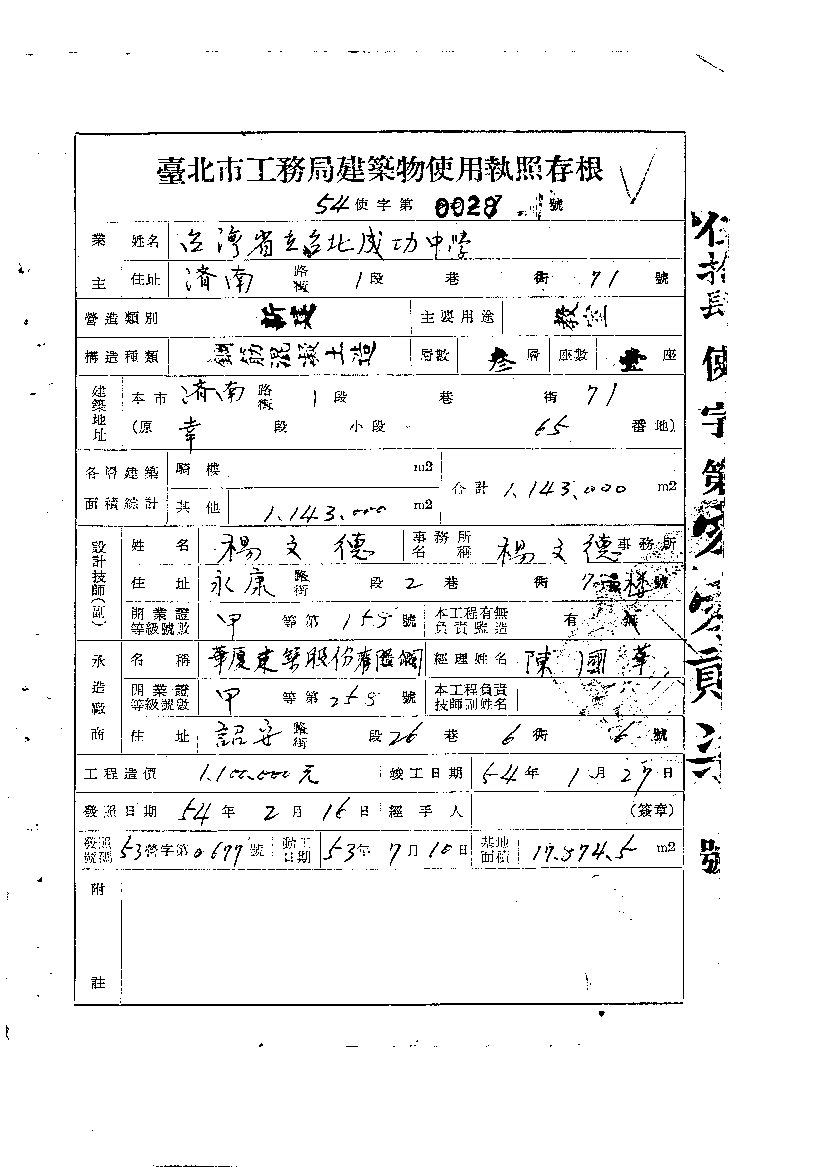 臺北市工務局建築物使用執照存根
54 使字第 0028 號
業主 姓名 台灣省立台北成功中學
住址 濟南 路街 1 段 巷 街 71 號
營造類別 新建 主要用途 教室
構造種類 鋼筋混凝土造 層數 叁 層 座數 壹 座
建築地址 本市 濟南 路街 1 段 巷 街 71
(原 幸 段 小段 65 番地)
各層建築面積綜計 騎樓 m2 合計 1,143.000 m2
其他 1,143.000 m2
設計技師(副) 姓名 楊文德 事務所名稱 楊文德 事務所
住址 永康 路街 段 2 巷 街 樓號
開業證等級號數 甲 等第 號 本工程有無負責監造 有 無
承造廠商 名稱 華厦建築股份有限 經理姓名 陳國華
開業證等級號數 甲 等第 號 本工程負責技師副姓名
住址 詔安 路街 段 26 巷 6 街 6 號
工程造價 1,100,000元 竣工日期 54 年 1 月 27 日
發照日期 54 年 2 月 16 日 經手人 (簽章)
發照號碼 53營字第0677號 動工日期 53年 7月10日 基地面積 17.874.5 m2
附註
伍拾肆使字第零零貳 號